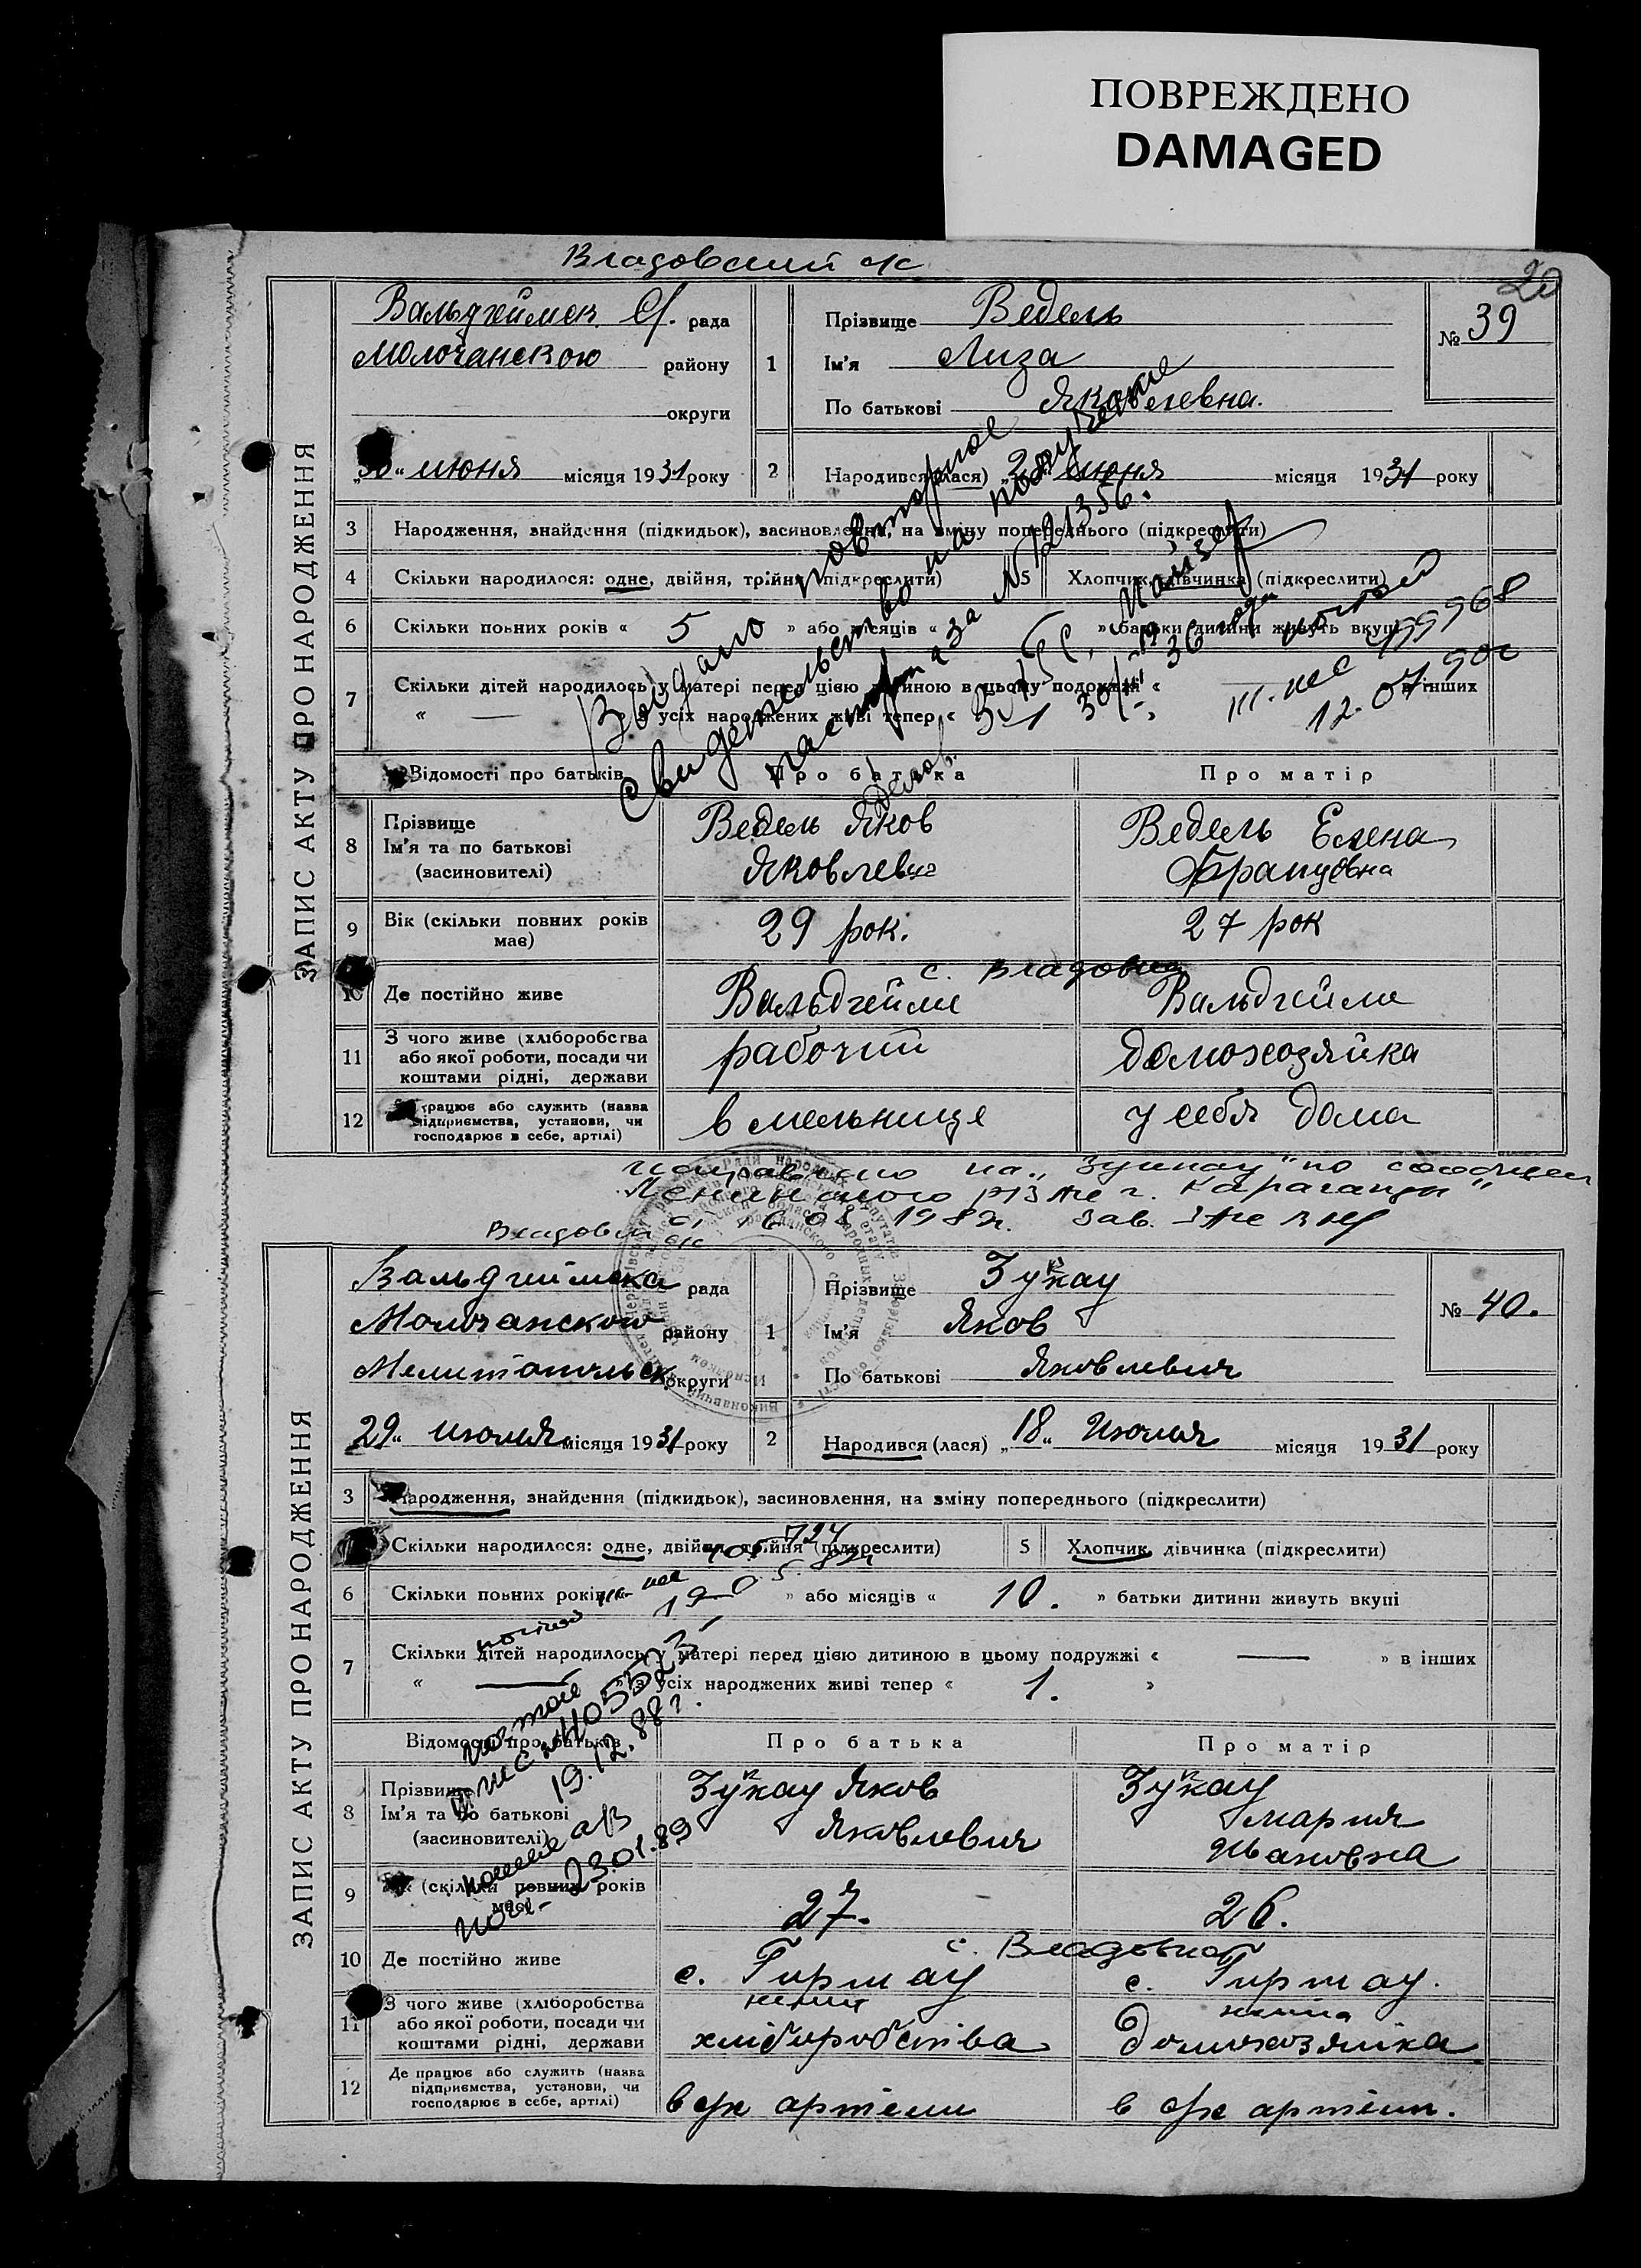 ПОВРЕЖДЕНО
DAMAGED
Владовский с/с
20
ЗАПИС АКТУ ПРО НАРОДЖЕННЯ
Вальдгеймск. С/. рада
Молочанского району
округи
„30“ июня місяця 1931 року
1
Прізвище Ведель
Ім'я Лиза
По батькові Яковлевна.
№ 39
2 Народився (лася) июня місяця 1931 року
3 Народження, знайдення (підкидьок), засиновлення, на зміну попереднього (підкреслити)
4 Скільки народилося: одне, двійня, трійня (підкреслити)
5 Хлопчик, дівчинка (підкреслити)
6 Скільки повних років « 5 » або місяців « » батьки дитини живуть вкупі
7 Скільки дітей народилось у матері перед цією дитиною в цьому подружжі « » в інших
« — » з усіх народжених живі тепер « 1 »
Выдано повторное
свидетельство на получение
паспорта за № 121356.
III. пас 499968
12.07.90г
Відомості про батьків
Про батька
Про матір
8 Прізвище
Ім'я та по батькові
(засиновителі)
Ведель Яков
Яковлевич
Ведель Елена
Францовна
9 Вік (скільки повних років має)
29 рок.
27 рок
с. Владовка
10 Де постійно живе
Вальдгейм
Вальдгейм
11 З чого живе (хліборобства
або якої роботи, посади чи
коштами рідні, держави
рабочий
домохозяйка
12 Де працює або служить (назва
підприємства, установи, чи
господарює в себе, артілі)
в мельнице
у себя дома
Исправлено на „Зуккау“ по сообщен
Ленинского р/ЗАГС г. Караганды
от 16 08 1982г. Зав. ЗАГС
Владовский с/с
ЗАПИС АКТУ ПРО НАРОДЖЕННЯ
Вальдгеймска рада
Молочанского району
Мелитопольск округи
29“ июля місяця 1931 року
1
Прізвище Зукау
Ім'я Яков
По батькові Яковлевич
№ 40.
2 Народився (лася) „18“ Июля місяця 1931 року
3 Народження, знайдення (підкидьок), засиновлення, на зміну попереднього (підкреслити)
4 Скільки народилося: одне, двійня, трійня (підкреслити)
5 Хлопчик, дівчинка (підкреслити)
6 Скільки повних років « » або місяців « 10. » батьки дитини живуть вкупі
7 Скільки дітей народилось у матері перед цією дитиною в цьому подружжі « — » в інших
« — » з усіх народжених живі тепер « 1. »
19.12.88г.
23.01.89
Відомости про батьків
Про батька
Про матір
8 Прізвище
Ім'я та по батькові
(засиновителі)
Зукау Яков
Яковлевич
Зукау
Мария
Ивановна
9 Вік (скільки повних років має)
27.
26.
с. Владовка
10 Де постійно живе
с. Гиршау
с. Гиршау.
11 З чого живе (хліборобства
або якої роботи, посади чи
коштами рідні, держави
хліборобства
домохозяйка
12 Де працює або служить (назва
підприємства, установи, чи
господарює в себе, артілі)
в с/х артели
в с/х артели.